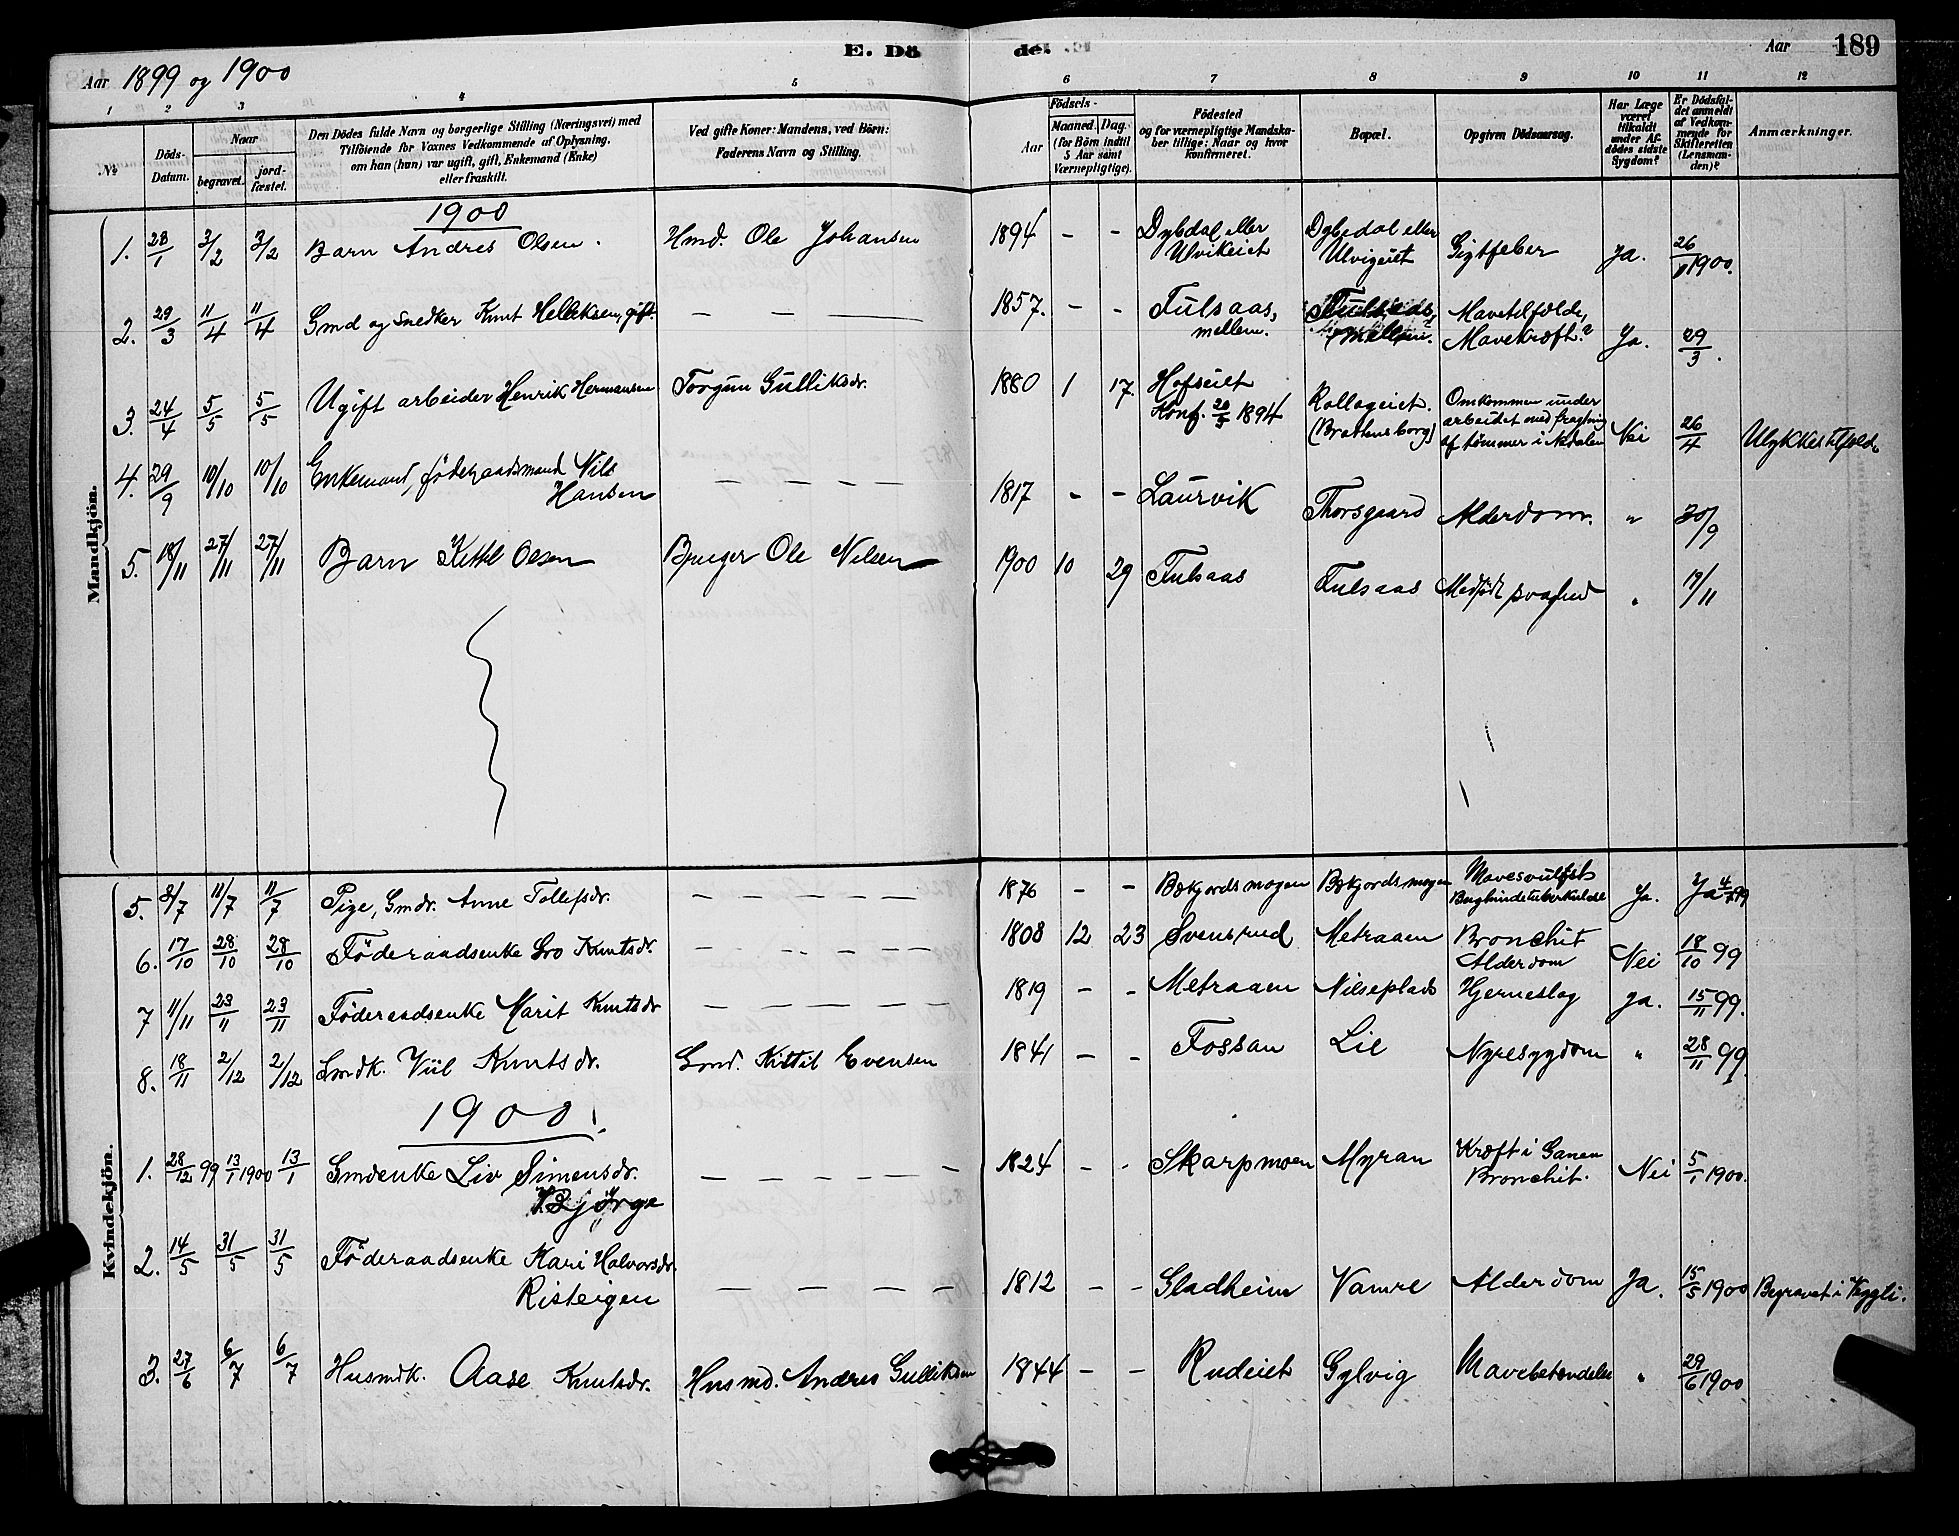 E. Dö de.
Aar 1899 og 1900
Aar 189
1 2 3 4 5 6 7 8 9 10 11 12
№
Döds-Datum.
Naar
begravet. jord-fæstet.
Den Dödes fulde Navn og borgerlige Stilling (Næringsvei) med
Tilföiende for Voxnes Vedkommende af Oplysning,
om han (hun) var ugift, gift, Enkemand (Enke)
eller fraskilt.
Ved gifte Koner: Mandens, ved Börn:
Faderens Navn og Stilling.
Födsels-
Aar
Maaned. Dag.
(for Börn indtil
5 Aar samt
Værnepligtige).
Födested
og for værnepligtige Mandska-
ber tillige: Naar og hvor
konfirmeret.
Bopæl.
Opgiven Dödsaarsag.
Har Læge
været
tilkaldt
under Af-
dödes sidste
Sygdom?
Er Dödsfal-
det anmeldt
af Vedkom-
mende for
Skifteretten
(Lensman-
den)?
Anmærkninger.
Mandkjön.
1900
1. 28/1 3/2 3/2 Barn Andres Olsen. Hmd. Ole Johansen 1894 - - Dybdal eller Ulvikeiet Dybedal eller Ulvigeiet Gigtfeber Ja. 26/1 1900.
2. 29/3 11/4 11/4 Gmd og Snedker Knut Helliksen, gift. — — — 1857. - - Fulsaas, mellem. Mavetilfælde, Mavekræft? Ja. 29/3.
3. 24/4 5/5 5/5 Ugift arbeider Henrik Hermansen Torgun Gulliksdr. 1880 1 17 Hofseiet Konf. 20/5 1894 Rollageiet. (Brattensborg) Omkommen under arbeidet med fragtning af tømmer i Nei 26/4 Ulykkestilfælde
4. 29/9 10/10 10/10 Enkemand, föderaadsmand Nils Hansen — — — — 1817 - - Laurvik Thorsgaard Alderdom. " 30/9
5. 18/11 27/11 27/11 Barn Kittil Olsen Bruger Ole Nilsen 1900 10 29 Fulsaas Fulsaas Medfödt svaghed " 19/11
Kvindekjön.
5. 8/7 11/7 11/7 Pige, Gmdr. Anne Tollefsdr. — — — — — 1876 - - Bækjordsmogen Bækjordsmogen Mavesvulst Bughindetuberkulose Ja. Ja
6. 17/10 28/10 28/10 Föderaadsenke Gro Knutsdr. — — — — — 1808 12 23 Svensrud Metraaen Bronchit Alderdom Nei 18/10 99
7 11/11 23/11 23/11 Föderaadsenke Marit Knutsdr — — — — — 1819 - - Metraaen Nilseplads Hjerneslag Ja. 15/11 99.
8. 18/11 2/12 2/12 Gmdk. Viil Knutsdr. Gmd. Kittil Evensen 1841 - - Fossan Lie Nyresygdom " 28/11 99.
1900.
1. 28/12 99 13/1 1900 13/1 Gmdenke Liv Simensdr. Bjørge — — — — — 1824 - - Skarpmoen Myran Kræft i Ganen Bronchit. Nei 5/1 1900.
2. 14/5 31/5 31/5 Föderaadsenke Kari Halvorsdr. Risteigen — — — — — 1812 - - Gladheim Vamre Alderdom Ja. 15/5 1900 Begravet i Veggli.
3. 27/6 6/7 6/7 Husmdk. Aase Knutsdr. Husmd. Andres Gulliksen 1844 - - Rudeiet Gylvig Mavebetændelse " 29/6 1900